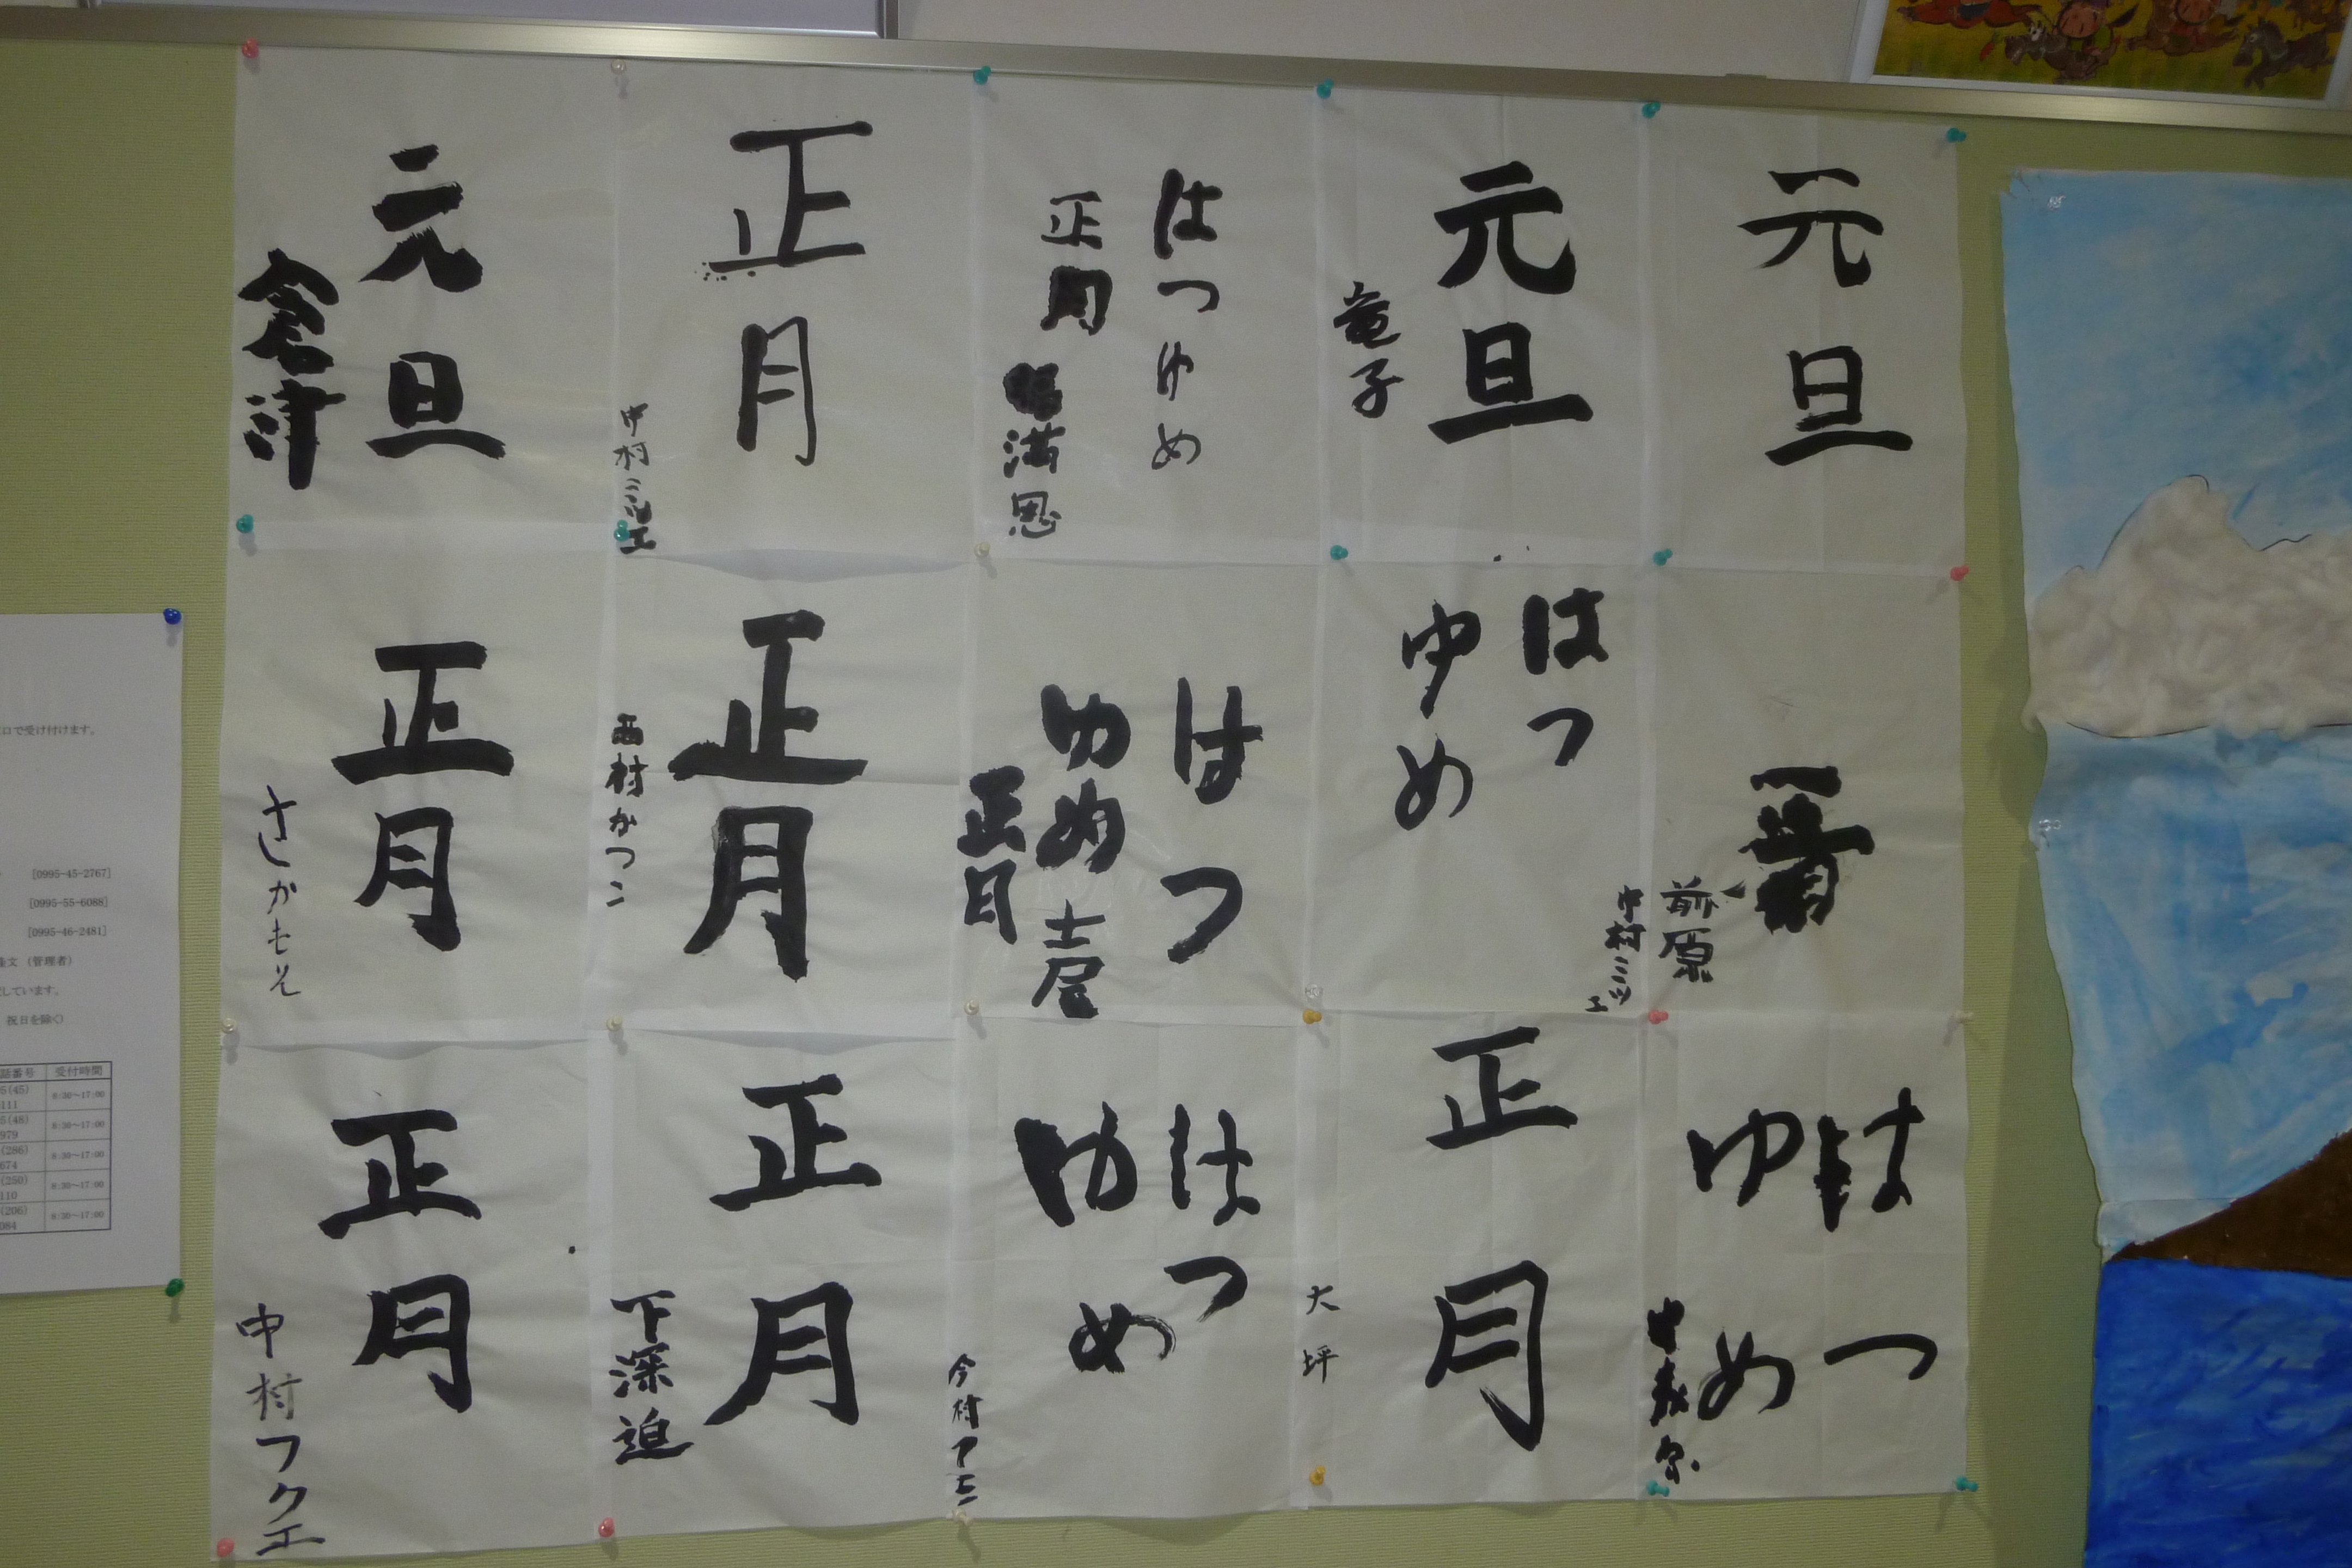 元旦
元旦
竜子
はつゆめ
正月
満恩
正月
中村ミツエ
元旦
倉津
一番
前原
はつ
ゆめ
中村ミツエ
はつ
ゆめ
土屋
正月
正月
西村かつこ
正月
さかもと
はつ
ゆめ
正月
大坪
はつ
ゆめ
今村アキ
正月
下深迫
正月
中村フクエ
口で受け付けます。
[0995-45-2767]
[0995-55-6088]
[0995-46-2481]
文（管理者）
しています。
祝日を除く）
話番号 受付時間
5(45) 8:30～17:00
111
5(48) 8:30～17:00
979
(286) 8:30～17:00
674
(250) 8:30～17:00
110
(206) 8:30～17:00
084